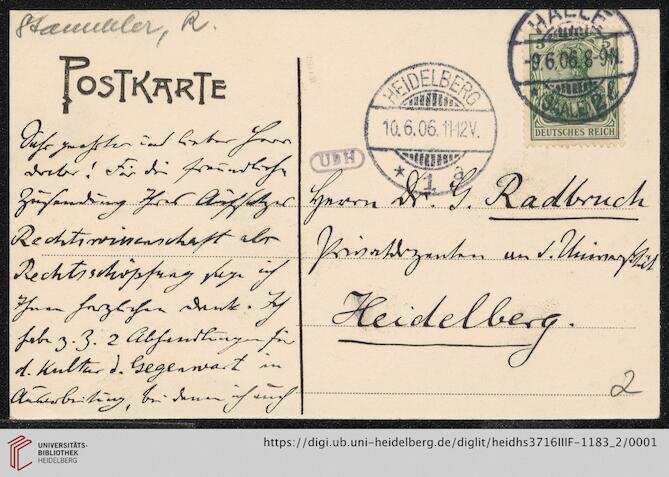 Stammler, R.
POSTKARTE
HALLE
-9.6.06.8-9N.
* (SAALE) 2 l
DEUTSCHES REICH
HEIDELBERG
10.6.06.11-12V.
* 1 a
UBH
Sehr geehrter und lieber Herr
Doktor! Für die freundliche
Zusendung Ihres Aufsatzes
Rechtswissenschaft als
Rechtsschöpfung sage ich
Ihnen herzlichen Dank. Ich
habe z. Z. 2 Abhandlungen für
d. Kultur d. Gegenwart in
Ausarbeitung, bei denen ich auch
Herrn Dr. G. Radbruch
Privatdozenten an d. Universität
Heidelberg.
2
UNIVERSITÄTS-
BIBLIOTHEK
HEIDELBERG
https://digi.ub.uni-heidelberg.de/diglit/heidhs3716IIIF-1183_2/0001